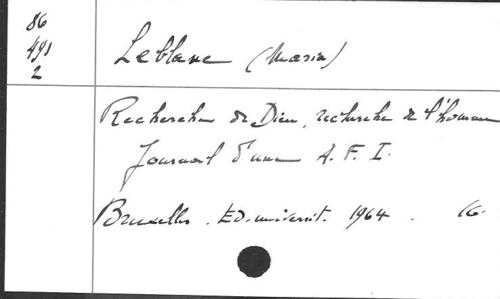 86
491
2
Leblanc (Maria)
Recherche de Dieu, recherche de l'homme
Journal d'une A. F. I.
Bruxelles. Ed. universit. 1964. 16.